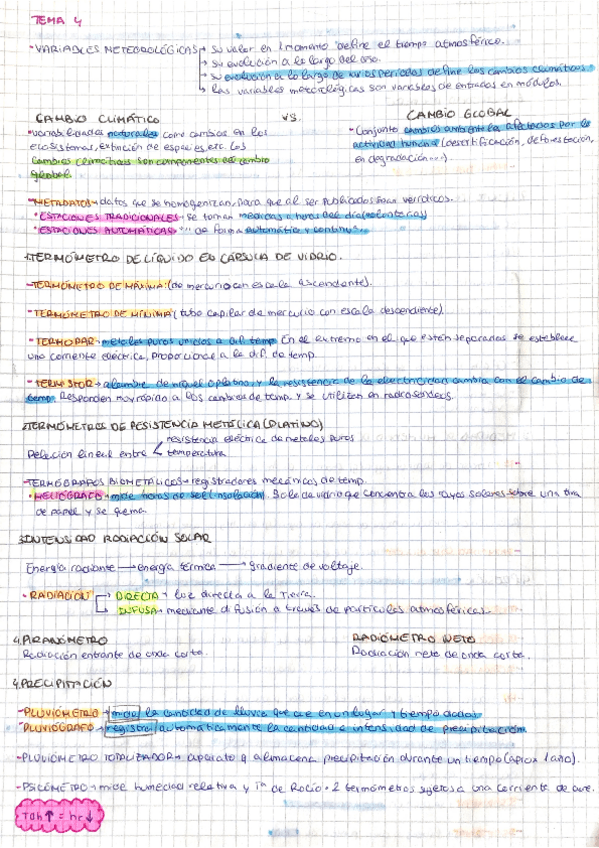 TEMA 4
-VARIABLES METEOROLÓGICAS → su valor en 1 momento define el tiempo atmosférico.
→ su evolución a lo largo del año.
→ su evolución a lo largo de varios periodos define los cambios climáticos.
→ las variables meteorológicas son variables de entradas en módulos.
CAMBIO CLIMÁTICO VS. CAMBIO GLOBAL
-Variabilidades naturales como cambios en los
ecosistemas, extinción de especies, etc. Los
cambios climáticos son componentes del cambio
global.
-Conjunto cambios ambientales afectados por la
actividad humana (desertificación, deforestación,
en degradación...)
-METADATOS → datos que se homogenizan, para que al ser publicados sean verídicos.
*ESTACIONES TRADICIONALES: se toman medidas a horas del día
*ESTACIONES AUTOMÁTICAS: "" de forma automática y continua.
1.TERMÓMETRO DE LÍQUIDO EN CÁPSULA DE VIDRIO.
-TERMÓMETRO DE MÁXIMA: (de mercurio con escala ascendente).
-TERMÓMETRO DE MÍNIMA: (tubo capilar de mercurio con escala descendente).
-TERMOPAR → metales puros unidos a dif. temp. En el extremo en el que estén separadas se establece
una corriente eléctrica, proporcional a la dif. de temp.
-TERMISTOR → alambre de níquel o platino y la resistencia de la electricidad cambia con el cambio de
temp. Responden muy rápido a los cambios de temp. y se utilizan en radiosondeos.
2.TERMÓMETROS DE RESISTENCIA METÁLICA (PLATINO)
Relación lineal entre < resistencia eléctrica de metales puros
temperatura
-TERMÓGRAFOS BIOMETÁLICOS → registradores mecánicos de temp.
*HELIÓGRAFO → mide horas de sol (insolación). Bola de vidrio que concentra los rayos solares sobre una tira
de papel y se quema.
3.INTENSIDAD RADIACIÓN SOLAR
Energía radiante → energía térmica → gradiente de voltaje.
-RADIACIÓN → DIRECTA → luz directa a la Tierra.
→ DIFUSA → mediante difusión a través de partículas atmosféricas.
4.PIRANÓMETRO RADIÓMETRO NETO
Radiación entrante de onda corta. Radiación neta de onda corta.
4.PRECIPITACIÓN
-PLUVIÓMETRO → mide la cantidad de lluvia que cae en un lugar y tiempo dados.
-PLUVIÓGRAFO → registra automáticamente la cantidad e intensidad de precipitación
-PLUVIÓMETRO TOTALIZADOR → aparato q almacena precipitación durante un tiempo (aprox 1 año).
-PSICÓMETRO → mide humedad relativa y Tª de Rocío. 2 termómetros sujetos a una corriente de aire.
Tdh↑ = hr↓